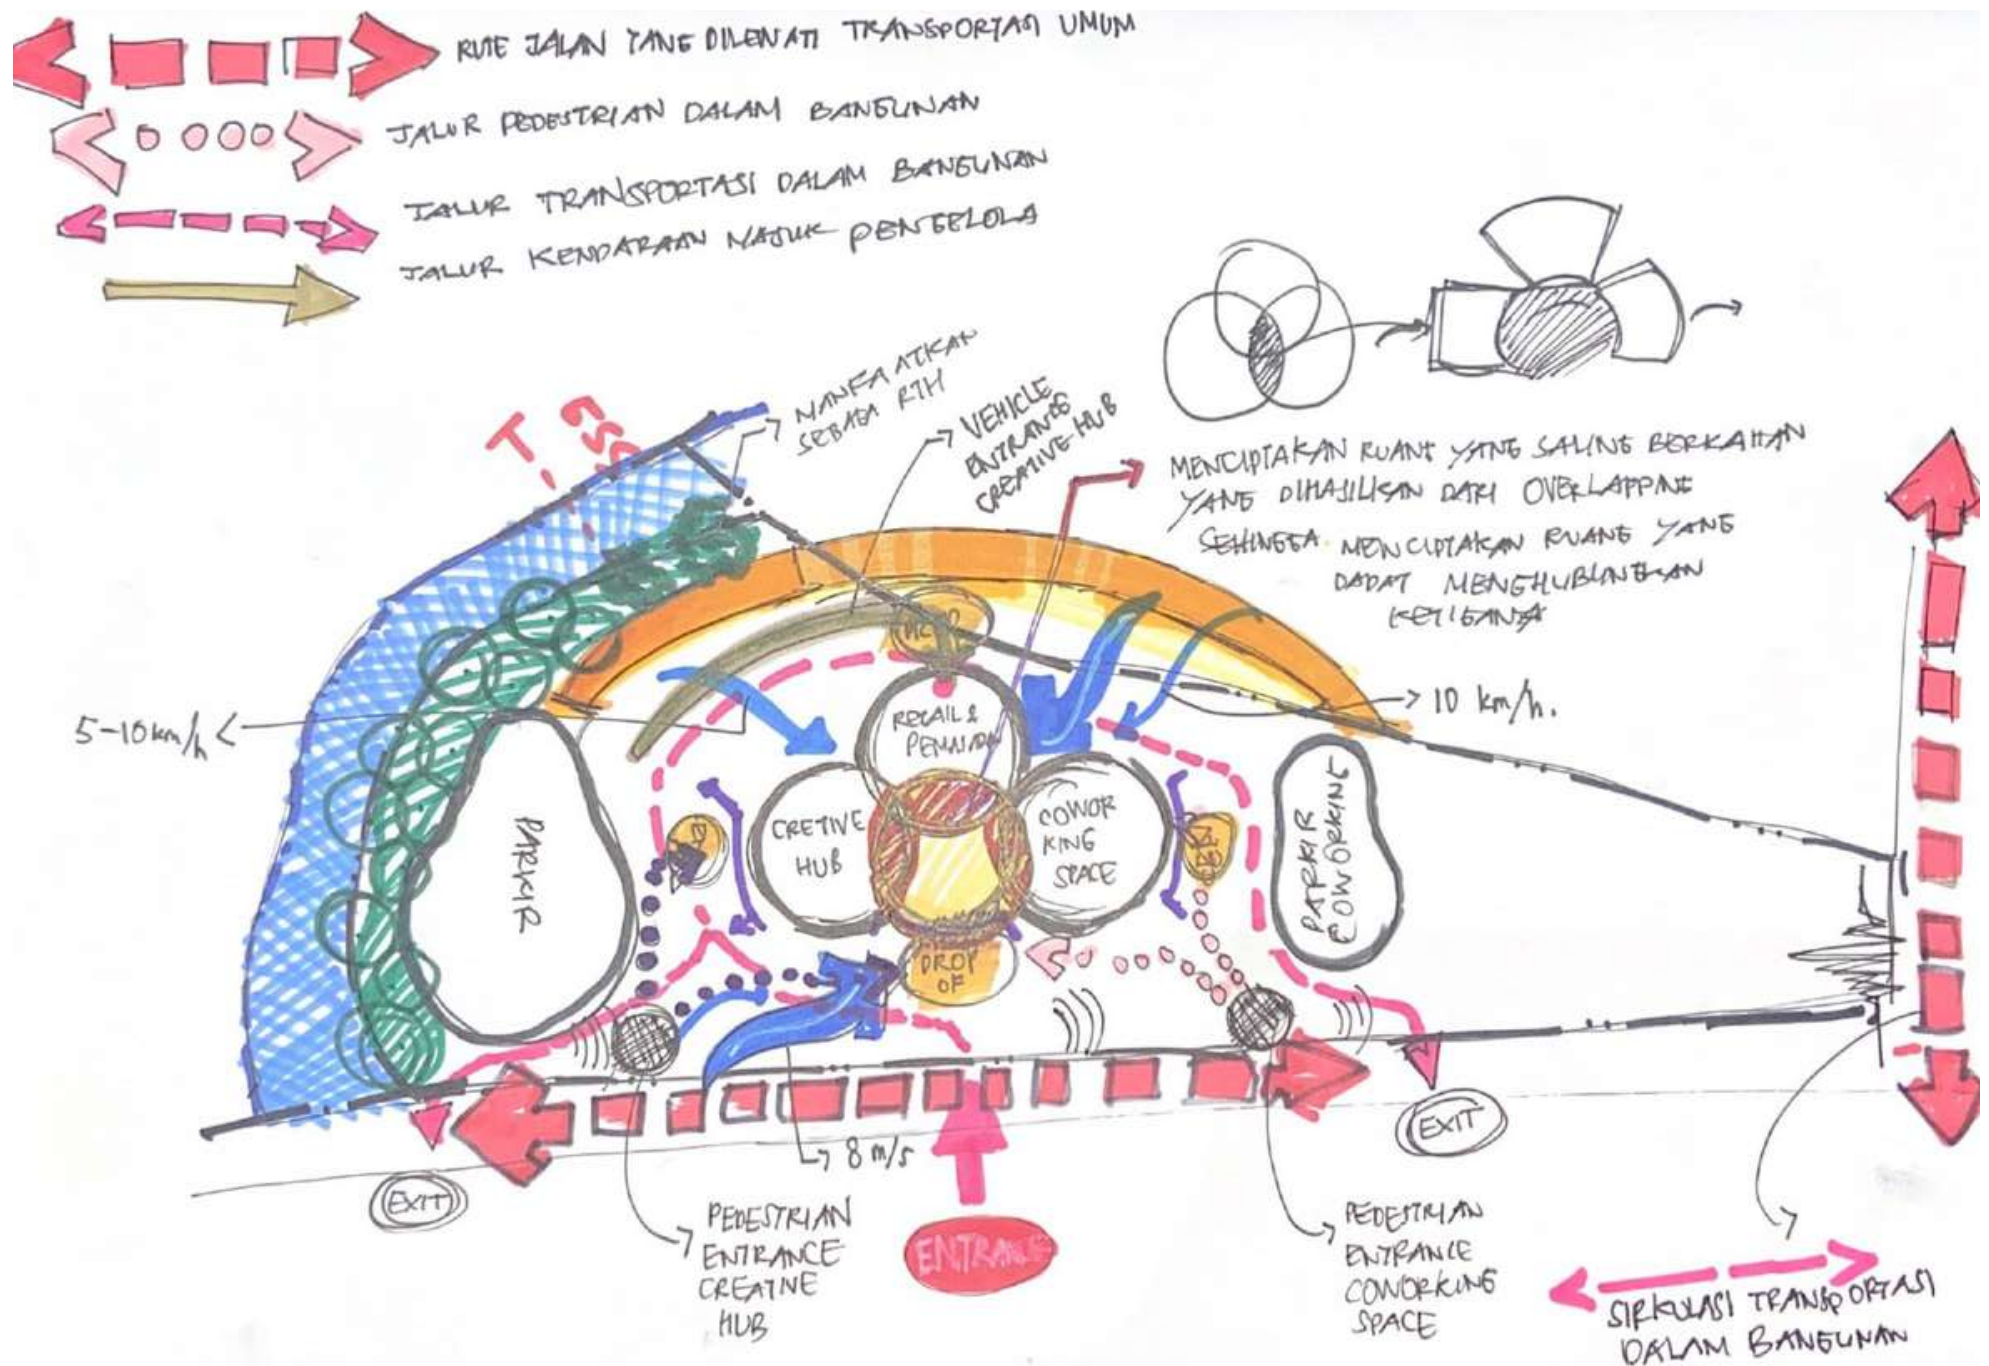 RUTE JALAN YANG DILEWATI TRANSPORTASI UMUM
JALUR PEDESTRIAN DALAM BANGUNAN
JALUR TRANSPORTASI DALAM BANGUNAN
JALUR KENDARAAN MASUK PENGELOLA
MANFAATKAN
SEBAGA RTH
VEHICLE
ENTRANCE
CREATIVE HUB
MENCIPTAKAN RUANG YANG SALING BERKAITAN
YANG DIHASILKAN DARI OVERLAPPING
SEHINGGA MENCIPTAKAN RUANG YANG
DAPAT MENGHUBUNGKAN
KETIGANYA
5-10 km/h
10 km/h.
RETAIL &
CRETIVE
HUB
COWOR
KING
SPACE
PARKIR
PARKIR
COWORKING
DROP
OF
8 m/s
EXIT
EXIT
ENTRANCE
PEDESTRIAN
ENTRANCE
CREATIVE
HUB
PEDESTRIAN
ENTRANCE
COWORKING
SPACE
SIRKULASI TRANSPORTASI
DALAM BANGUNAN